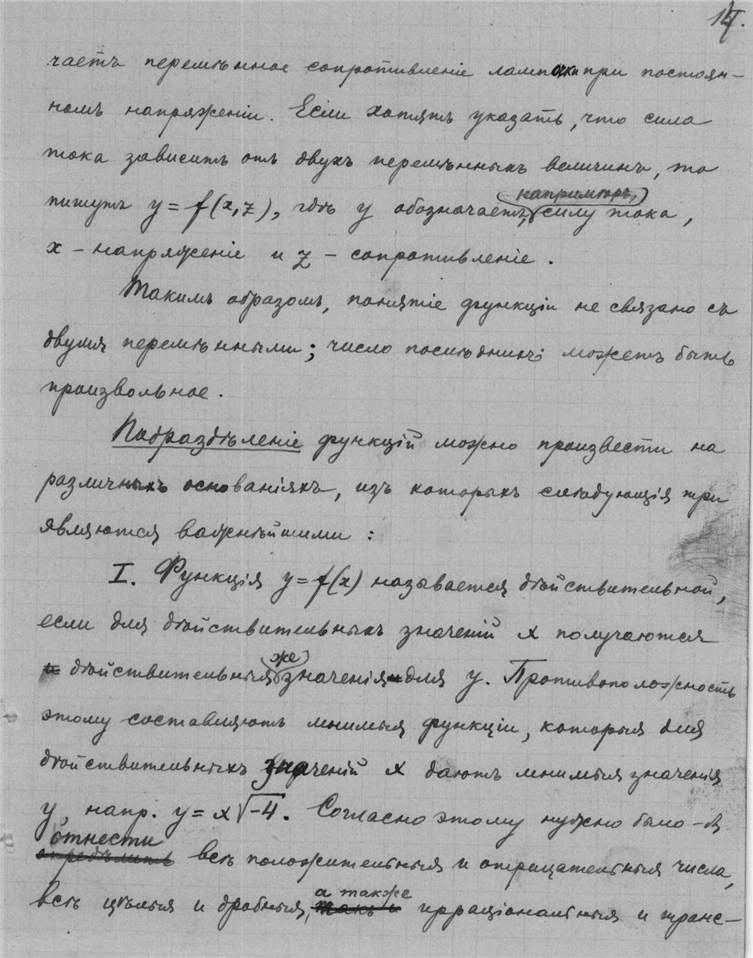 14.
чаетъ перемѣнное сопротивленіе лампочки при постоян-
номъ напряженіи. Если хотятъ указать, что сила
тока зависитъ отъ двухъ перемѣнныхъ величинъ, то
напримѣръ,
пишутъ y = f(x,z), гдѣ y обозначаетъ, силу тока,
x – напряженіе и z – сопротивленіе.
Такимъ образомъ, понятіе функціи не связано съ
двумя перемѣнными; число послѣднихъ можетъ быть
произвольное.
Подраздѣленіе функцій можно произвести на
различныхъ основаніяхъ, изъ которыхъ слѣдующія три
являются важнѣйшими:
I. Функція y = f(x) называется дѣйствительной,
если для дѣйствительныхъ значеній x получаются
же
дѣйствительныя значенія для y. Противоположность
этому составляютъ мнимыя функціи, которыя для
дѣйствительныхъ значеній x даютъ мнимыя значенія
y, напр. y = x√-4. Согласно этому нужно было-бы
отнести
опредѣлить всѣ положительныя и отрицательныя числа,
а также
всѣ цѣлыя и дробныя, ирраціональныя и транс-